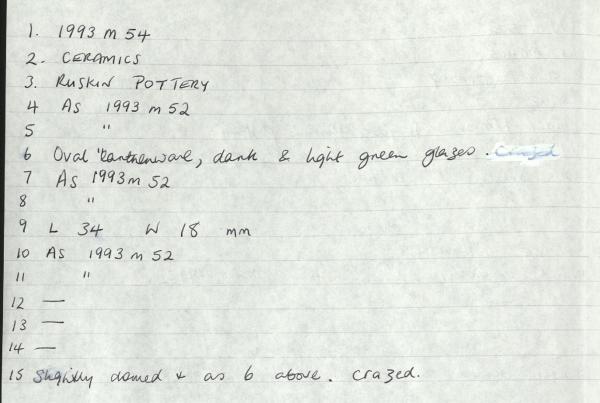 1. 1993 M 54
2. CERAMICS
3. RUSKIN POTTERY
4 AS 1993 M 52
5 "
6 Oval earthenware, dark & light green glazes. Crazed
7 AS 1993 M 52
8 "
9 L 34 W 18 mm
10 AS 1993 M 52
11 "
12 —
13 —
14 —
15 Slightly domed & as 6 above. Crazed.